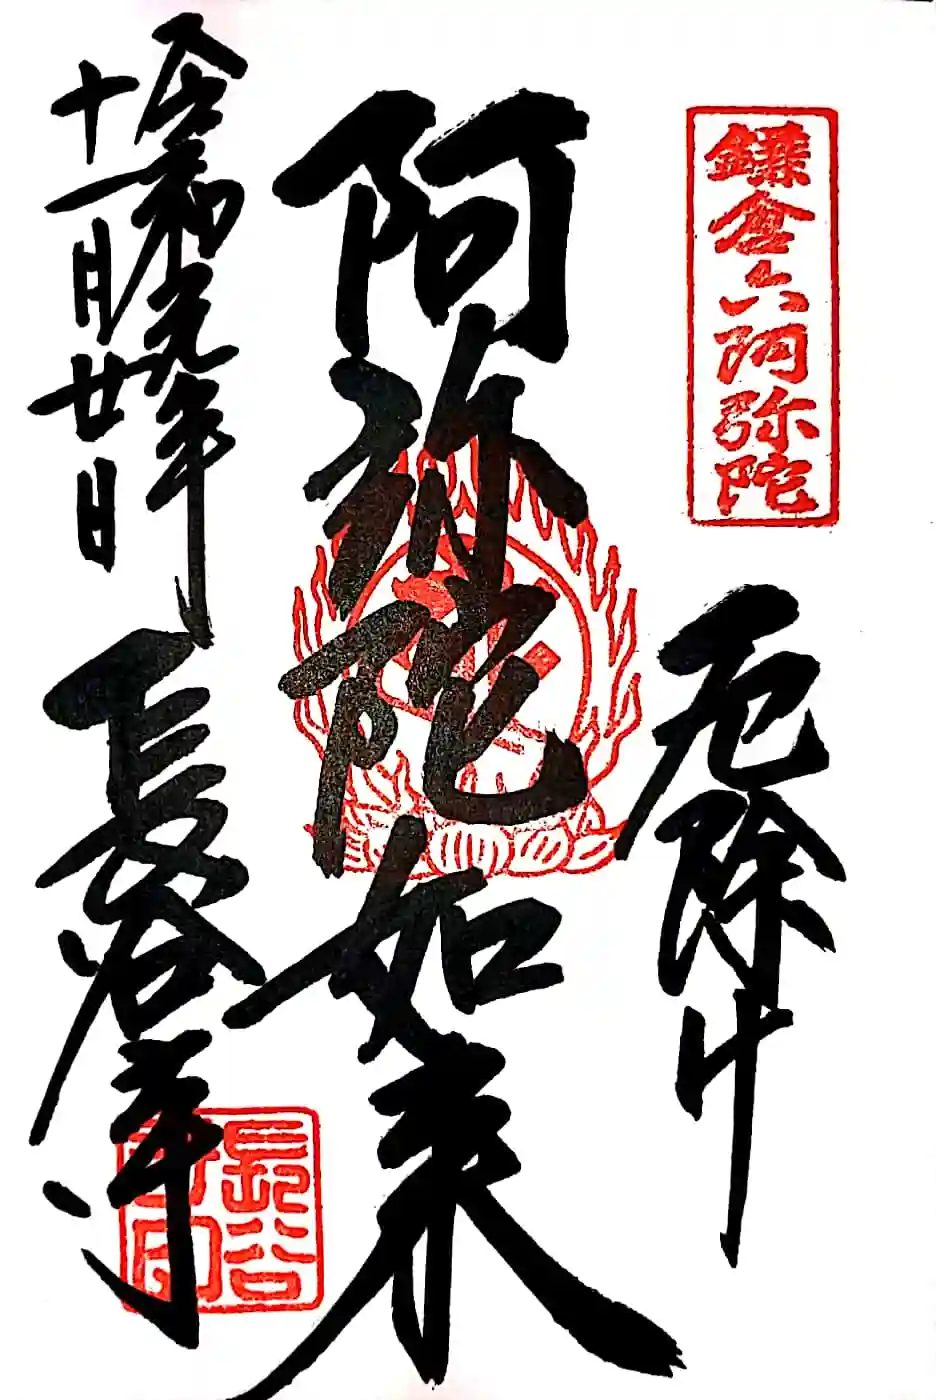 鎌倉六阿弥陀
厄除け
阿弥陀如来
令和元年
十一月廿日
長谷寺
長谷
寺印